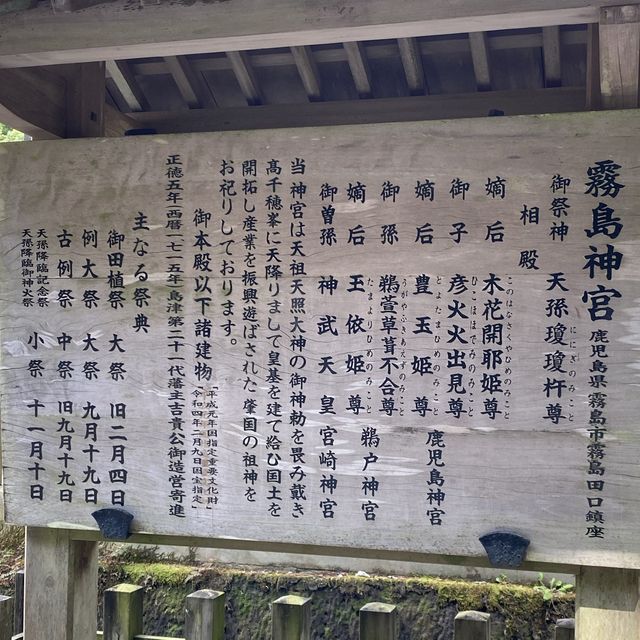 霧島神宮 鹿児島県霧島市霧島田口鎮座
御祭神 天孫瓊瓊杵尊
ににぎのみこと
相殿
嫡后 木花開耶姫尊
このはなさくやひめのみこと
御子 彦火火出見尊 鹿児島神宮
ひこほほでみのみこと
嫡后 豊玉姫尊
とよたまひめのみこと
御孫 鵜萱草葺不合尊 鵜戸神宮
うがやふきあえずのみこと
嫡后 玉依姫尊
たまよりひめのみこと
御曽孫 神武天皇 宮崎神宮
当神宮は天祖天照大神の御神勅を畏み戴き
高千穂峯に天降りまして皇基を建て給ひ国土を
開拓し産業を振興遊ばされた肇国の祖神を
お祀りしております。
御本殿以下諸建物 「平成元年国指定重要文化財」
「令和四年二月九日国宝指定」
正徳五年西暦一七一五年島津第二十一代藩主吉貴公御造営寄進
主なる祭典
御田植祭 大祭 旧二月四日
例大祭 大祭 九月十九日
古例祭 中祭 旧九月十九日
天孫降臨記念祭
天孫降臨御神火祭 小祭 十一月十日